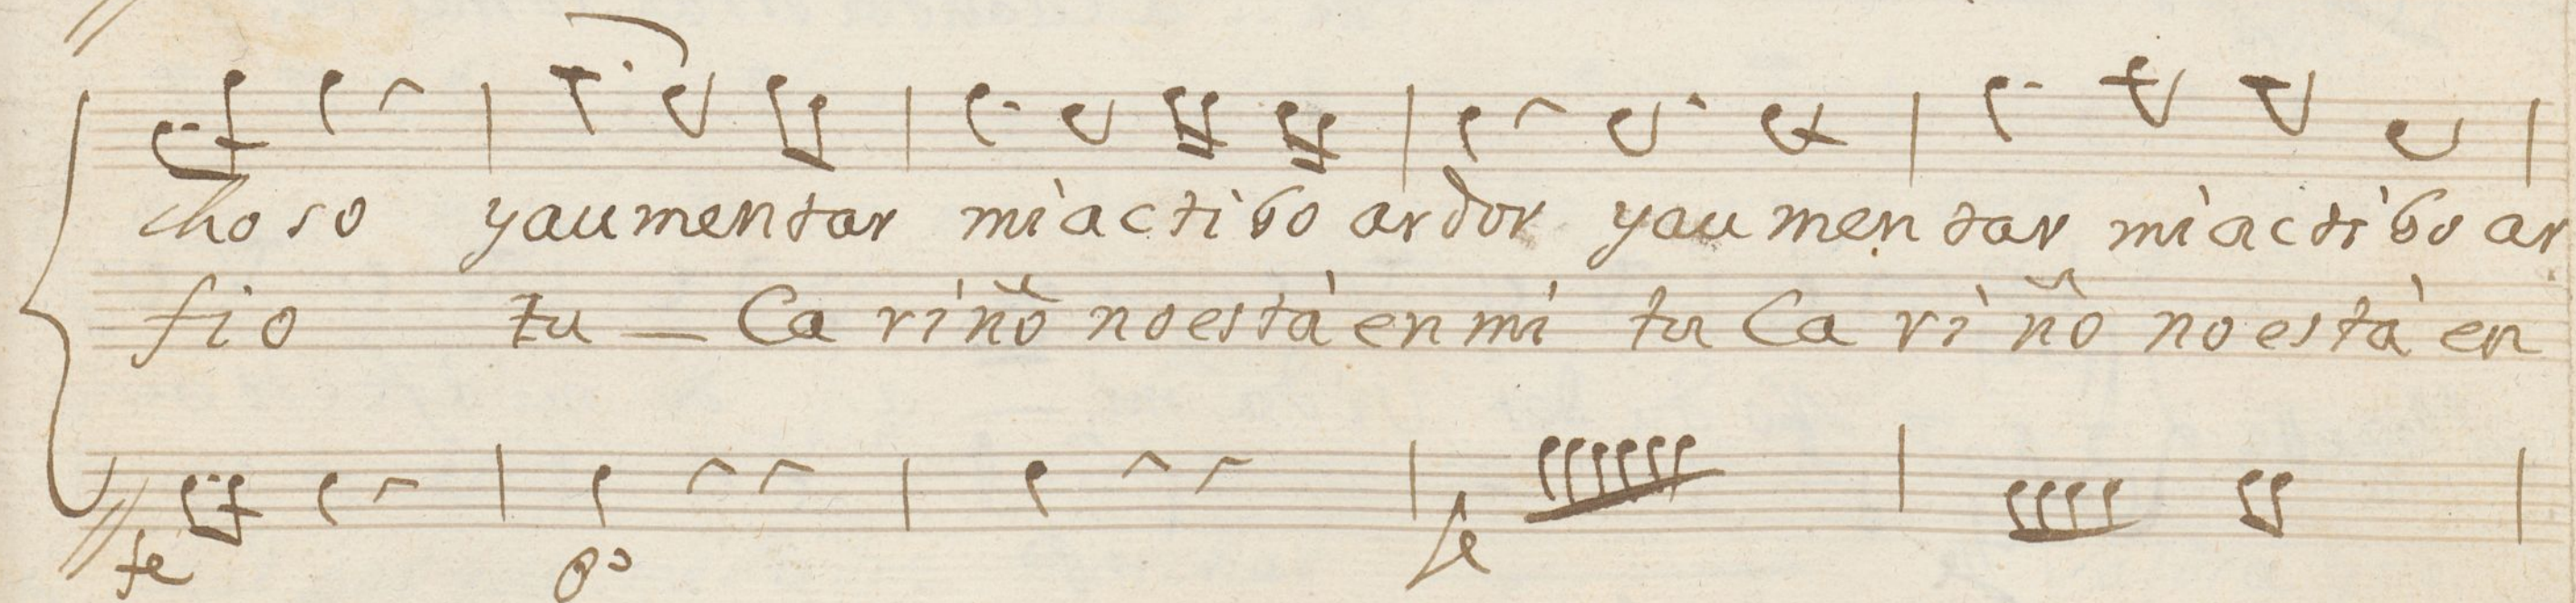 choso yaumentar mi actibo ardor yaumentar mi actibo ar
fio tu — Cariño no està en mi tu Cariño no està en
fe pº fe